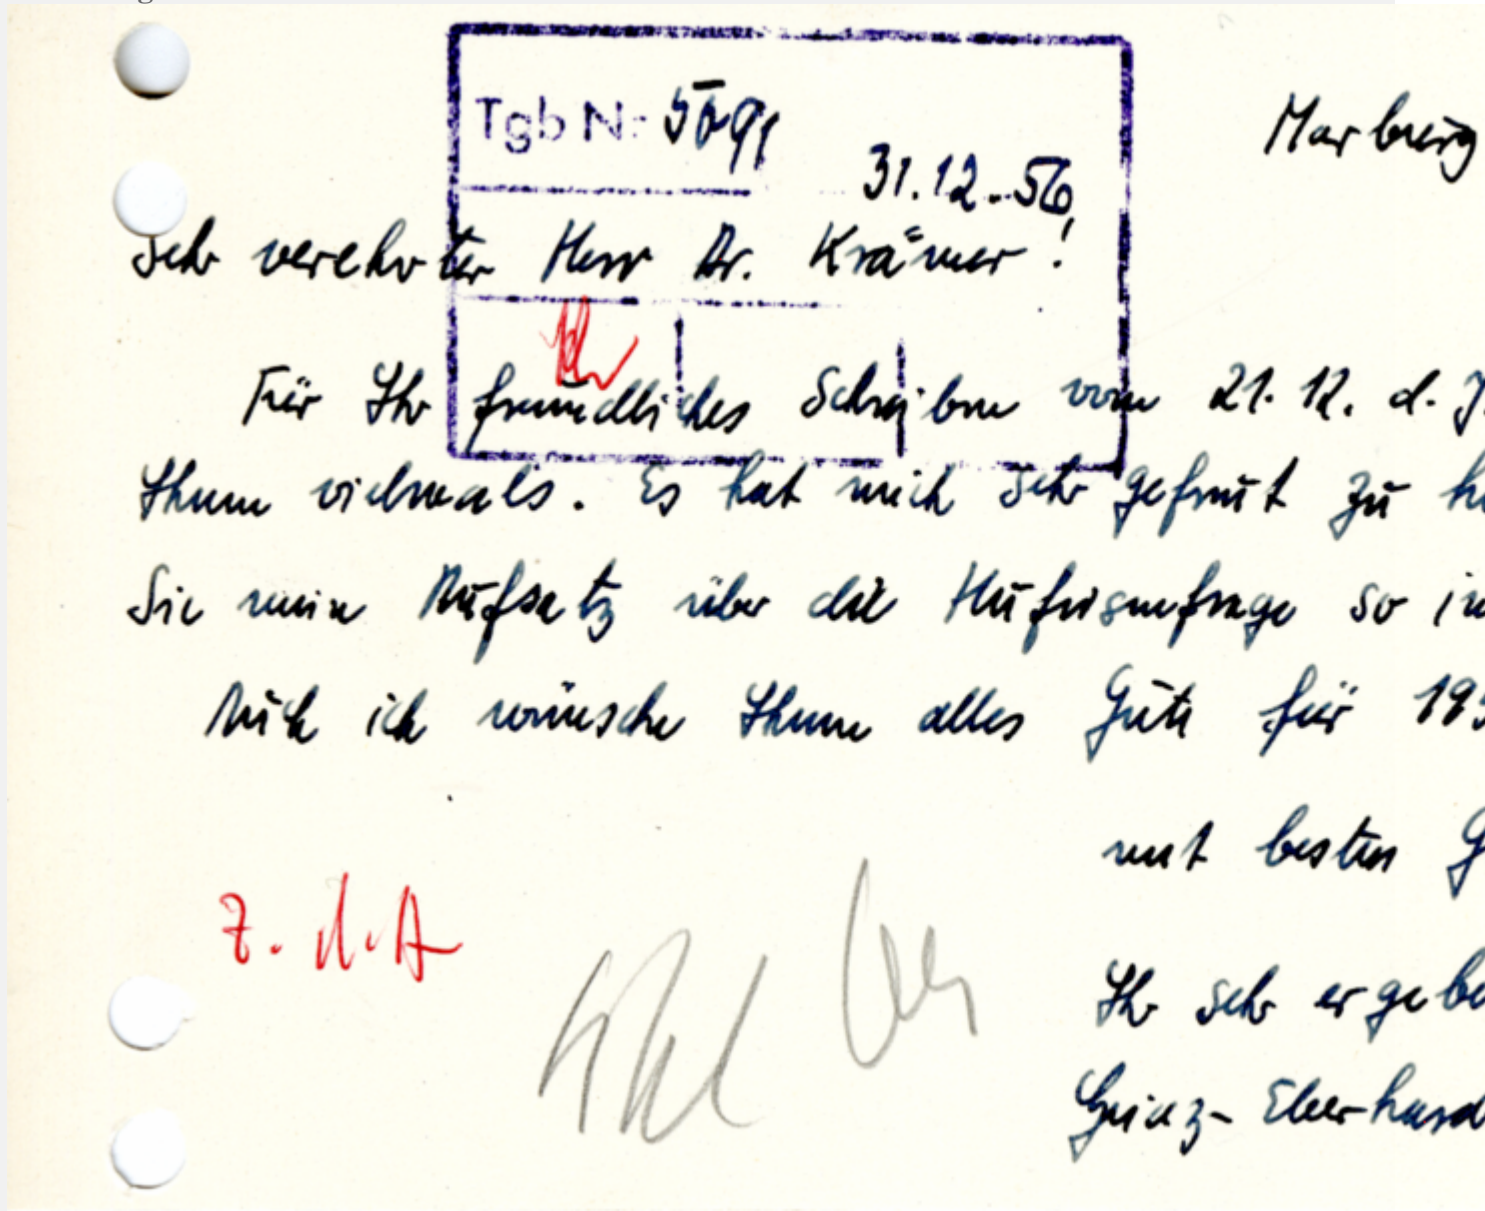 Marburg
Tgb Nr. 5691
31.12.56
Sehr verehrter Herr Dr. Krämer!
Für Ihr freundliches Schreiben vom 21.12. d. J.
Ihnen vielmals. Es hat mich sehr gefreut zu
Sie mein Aufsatz über die Hufeisenfrage so
Auch ich wünsche Ihnen alles Gute für 195
mit besten G
z. d. A
Ihr sehr ergebe
Heinz-Eberhard